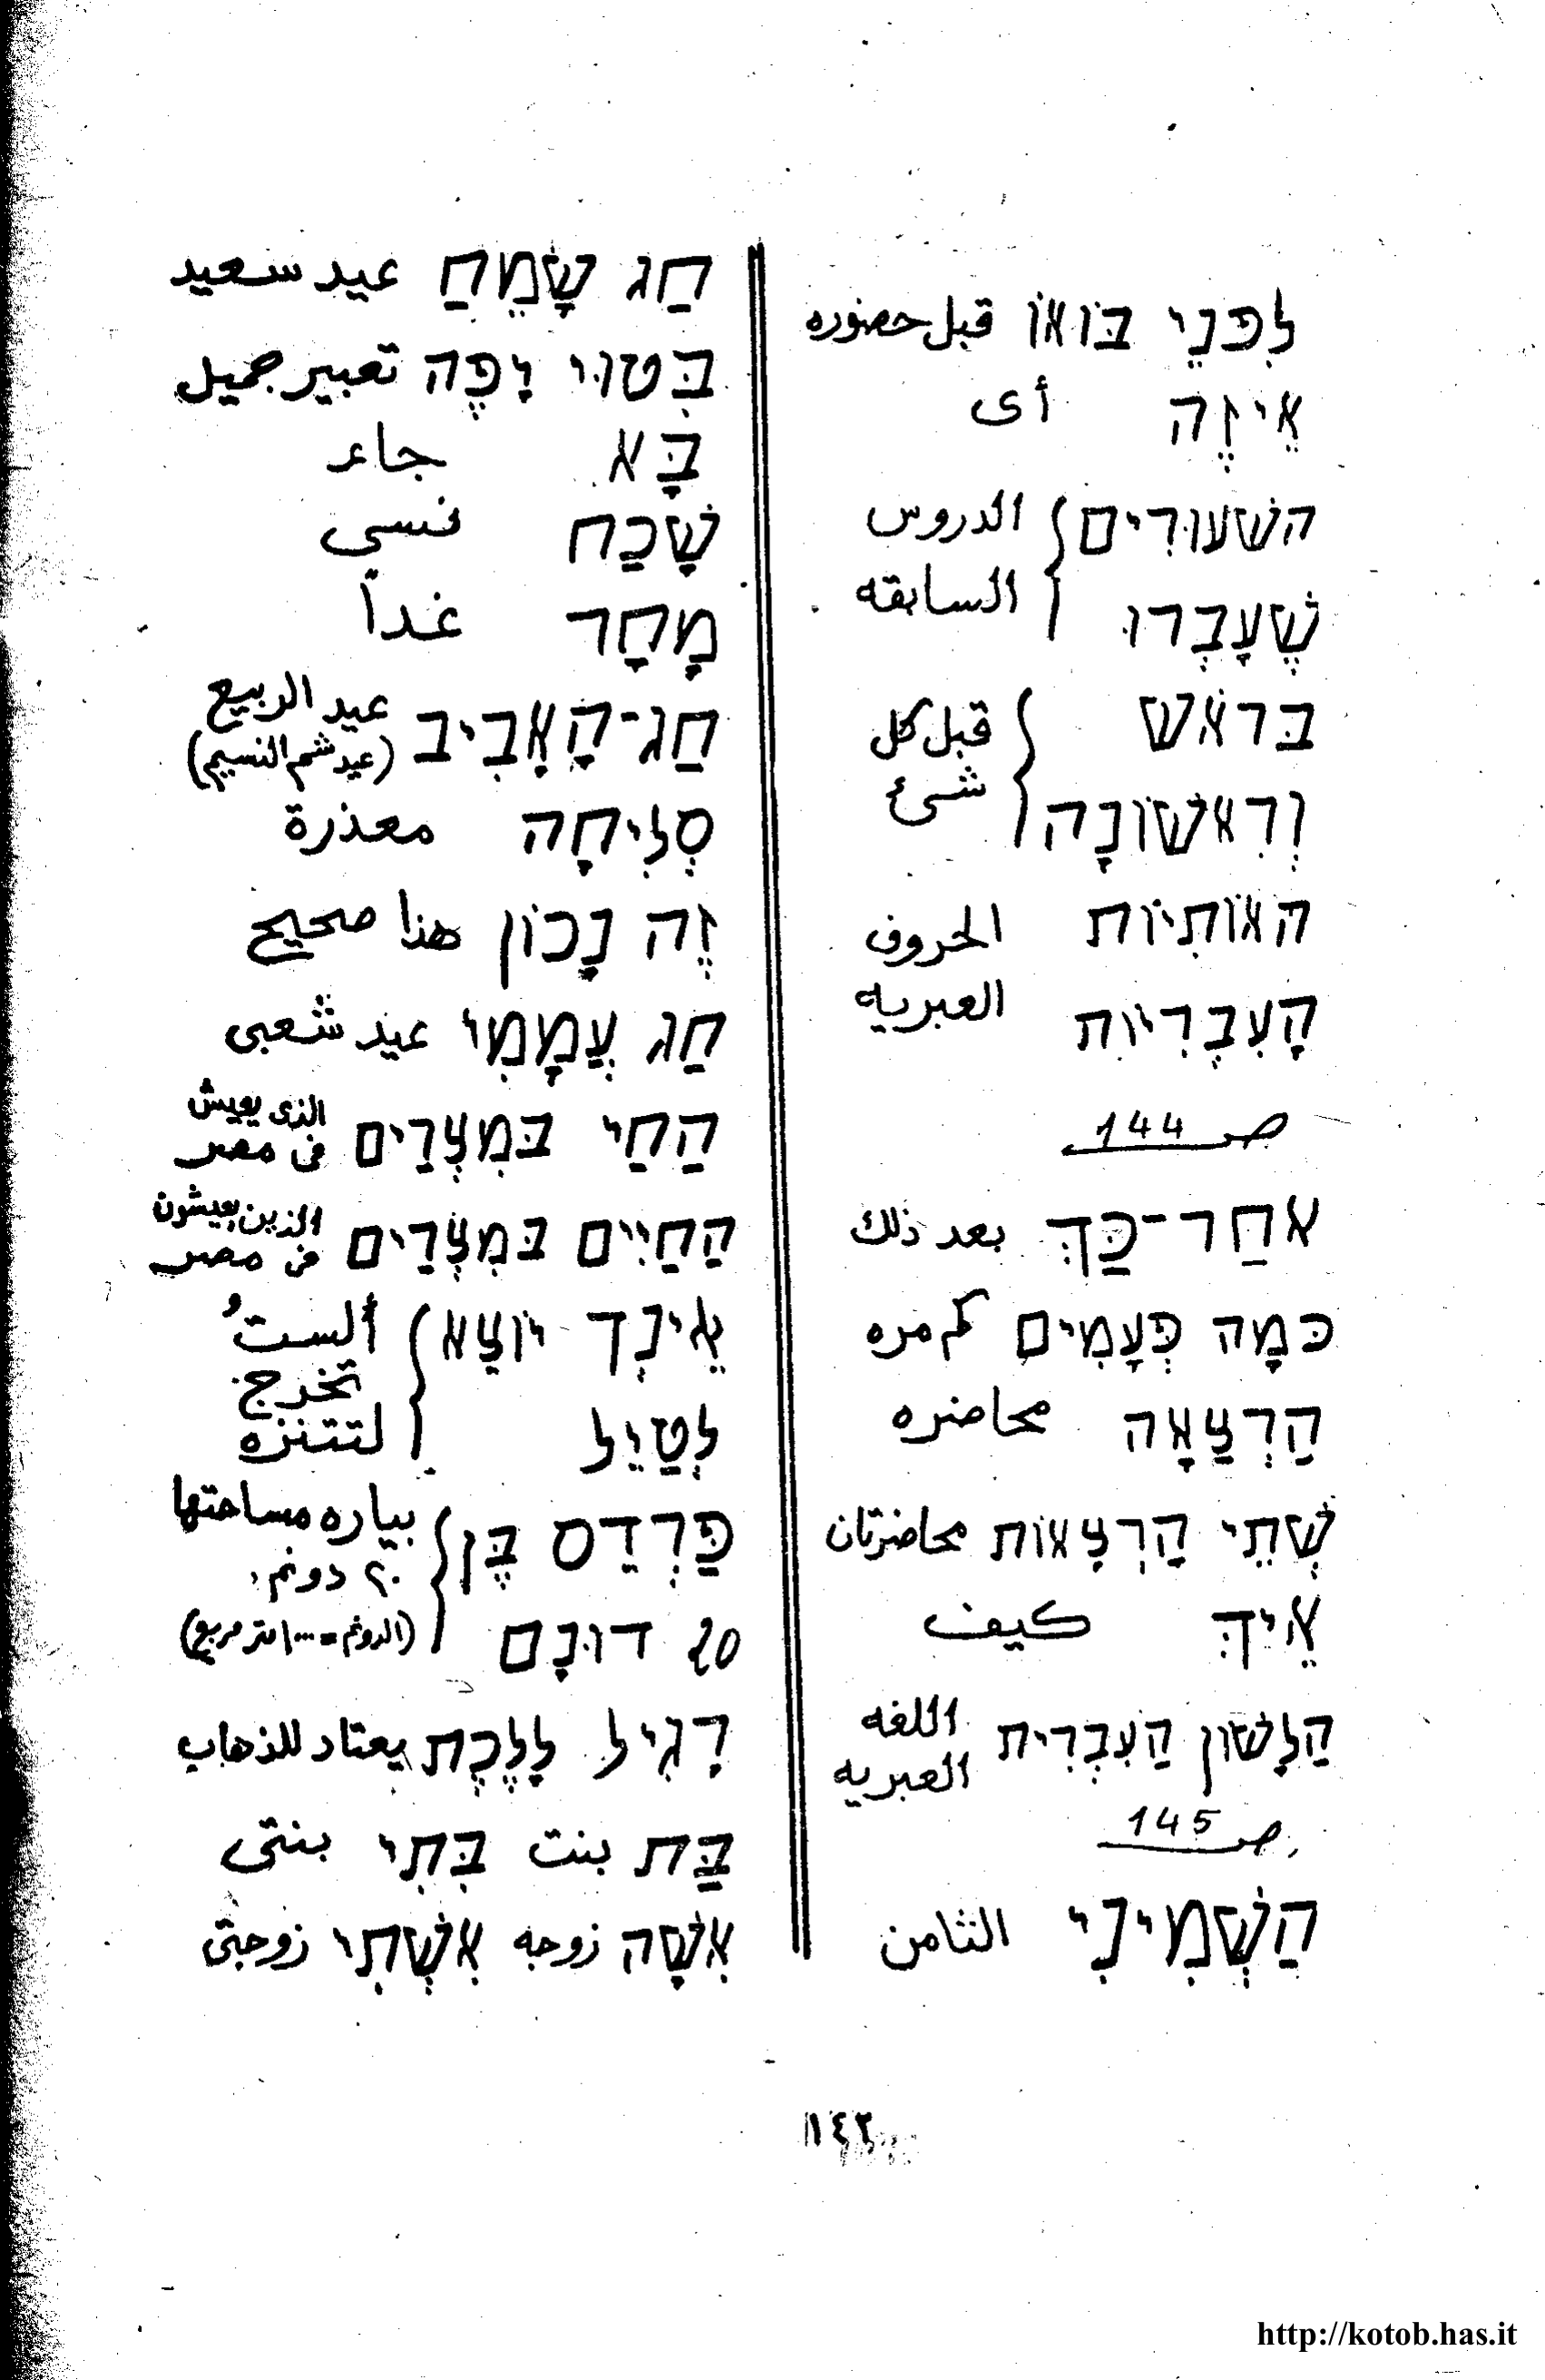 לִפְנֵי בּוֹאוֹ قبل حضوره
אֵיזֶה أى
הַשׁעוּרִים } الدروس
שֶׁעָבְרוּ السابقه
בּראֹשׁ } قبل كل
וְרִאשׁוֹנָה شئ
הָאוֹתִיּוֹת الحروف
הָעִבְרִיּוֹת العبريه
ص 144
אַחַר־כַּךְ بعد ذلك
כּמָה פְּעָמִים كم مره
הַרְצַאָה محاضره
שְׁתֵּי הָרְצָאוֹת محاضرتان
אֵיךְ كيف
הַלָשׁוֹן הַעִבְרִית اللغه
العبريه
ص 145
הַשְּׁמִינִי الثامن
חַג שָׂמֵחַ عيد سعيد
בִּטוּי יָפֶה تعبير جميل
בָּא جاء
שָׁכַח نسي
מָחָר غداً
חַג־הָאָבִיב عيد الربيع
(عيد شم النسيم)
סְלִיחָה معذرة
זֶה נָכוֹן هذا صحيح
חַג עֲמָמִי عيد شعبى
הַחַי בּמִצְרַיִם الذى يعيش
فى مصر
הַחַיִּים בּמִצְרַיִם الذين يعيشون
فى مصر
אֵינְךָ יוֹצֵא } ألستُ
تخرج
לְטַיֵּל لتتنزه
פַּרְדֵס בֶּן } بياره مساحتها
٢٠ دونم
20 דוּנָם (الدونم = ١٠٠٠ متر مربع)
רָגִיל לָלֶכֶת يعتاد للذهاب
בַּת بنت בִּתִּי بنتى
אִשָׁה زوجه אִשְׁתִּי زوجتى
١٤٢
http://kotob.has.it